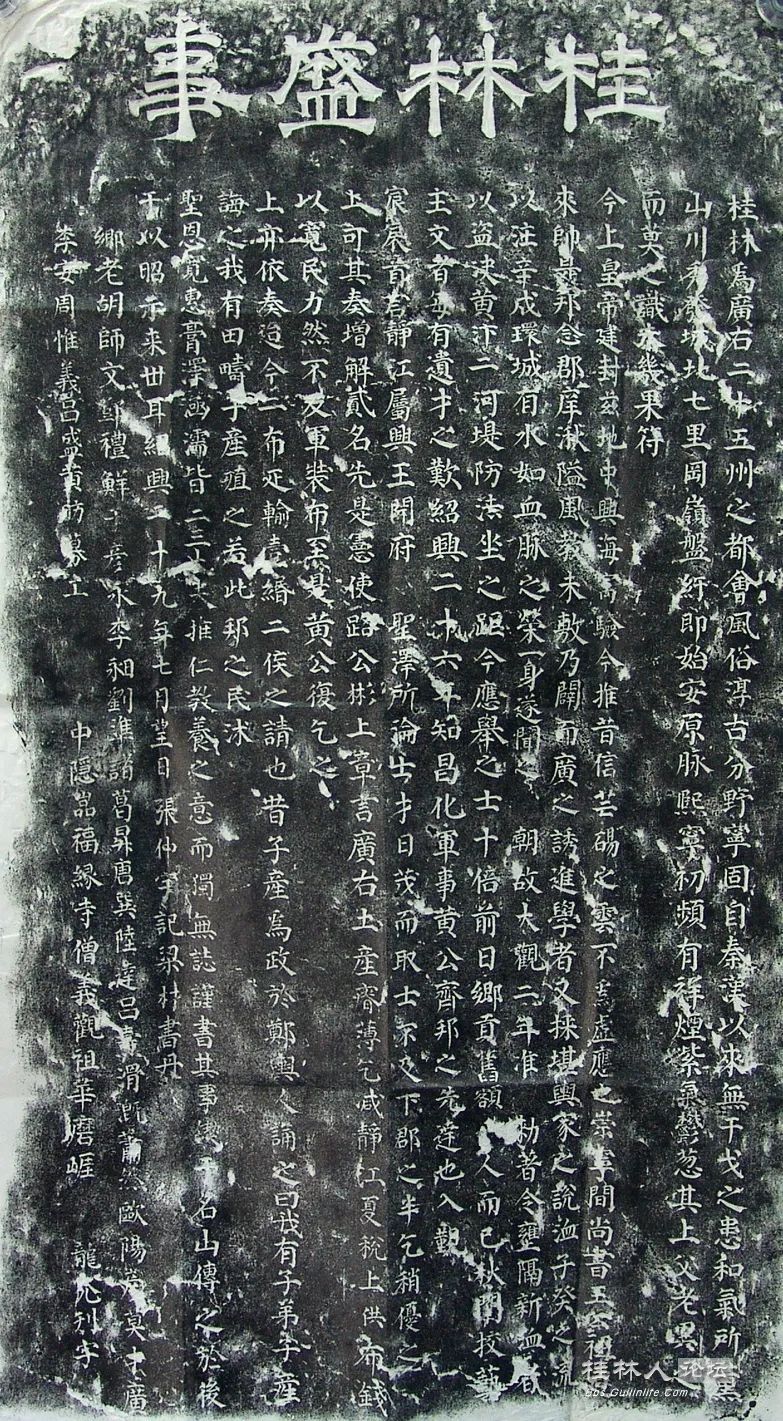 桂林盛事
桂林為廣右二十五州之都會風俗淳古分野寧固自秦漢以來無干戈之患和氣所薰
山川秀發城北七里岡嶺盤紆即始安原脉熙寧初頻有祥煙紫氣鬱葱其上父老異
而莫之識未幾果符
今上皇帝建封兹地中興海宇驗今推昔信芒碭之雲不為虚應之崇寧間尚書王公祖道
來帥是邦念郡庠湫隘風教未敷乃闢而廣之誘進學者又採堪輿家之說洫子癸之流
以注辛戌環城有水如血脉之榮一身遂聞之 朝故大觀二年准 勑者令壅隔新洫者
以盜決黄汴二河堤防法坐之距今應舉之士十倍前日鄉貢舊額 人而已秋闈校藝
主文者每有遺才之歎紹興二十六年知昌化軍事黄公齊邦之先達也入覲
宸扆首言靜江屬興王開府 聖澤所淪士才日茂而取士不及下郡之半乞稍優之
上可其奏增解貳名先是憲使路公彬上章言廣右土產瘠薄乞减靜江夏稅上供布錢
以寬民力然不及軍裝布至是黄公復乞之
上亦依奏迨今二布疋輸壹緡二侯之請也昔子產為政於鄭輿人誦之曰我有子弟子產
誨之我有田疇子產殖之若此邦之民沐
聖恩寬惠膏澤涵濡皆二三大夫推仁教養之意而獨無誌謹書其事 于名山傳之於後
于以昭示来世耳紹興二十九年七月望日張仲宇記梁材書丹
鄉老胡師文 禮鮮于彦永李昶劉 諸葛昇唐巽陸 吕 滑 蕭 歐陽 莫 廣
秦安周惟義吕盛黄昉募工 中隱嵓福緣寺僧義觀祖華磨崕 龍光刊字
桂林人论坛
bbs.Guilinlife.Com